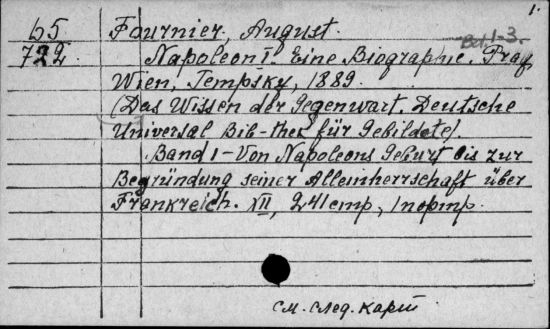 1.
65
722
Fournier, August.
Bd. 1-3.
Napoleon I. Eine Biographie. Prag,
Wien, Tempsky, 1889.
(Das Wissen der Gegenwart. Deutsche
Universal Bib-thek für Gebildete).
Band 1 – Von Napoleons Geburt bis zur
Begründung seiner Alleinherrschaft über
Frankreich. XII, 241 стр, 1 портр.
См. след. карт